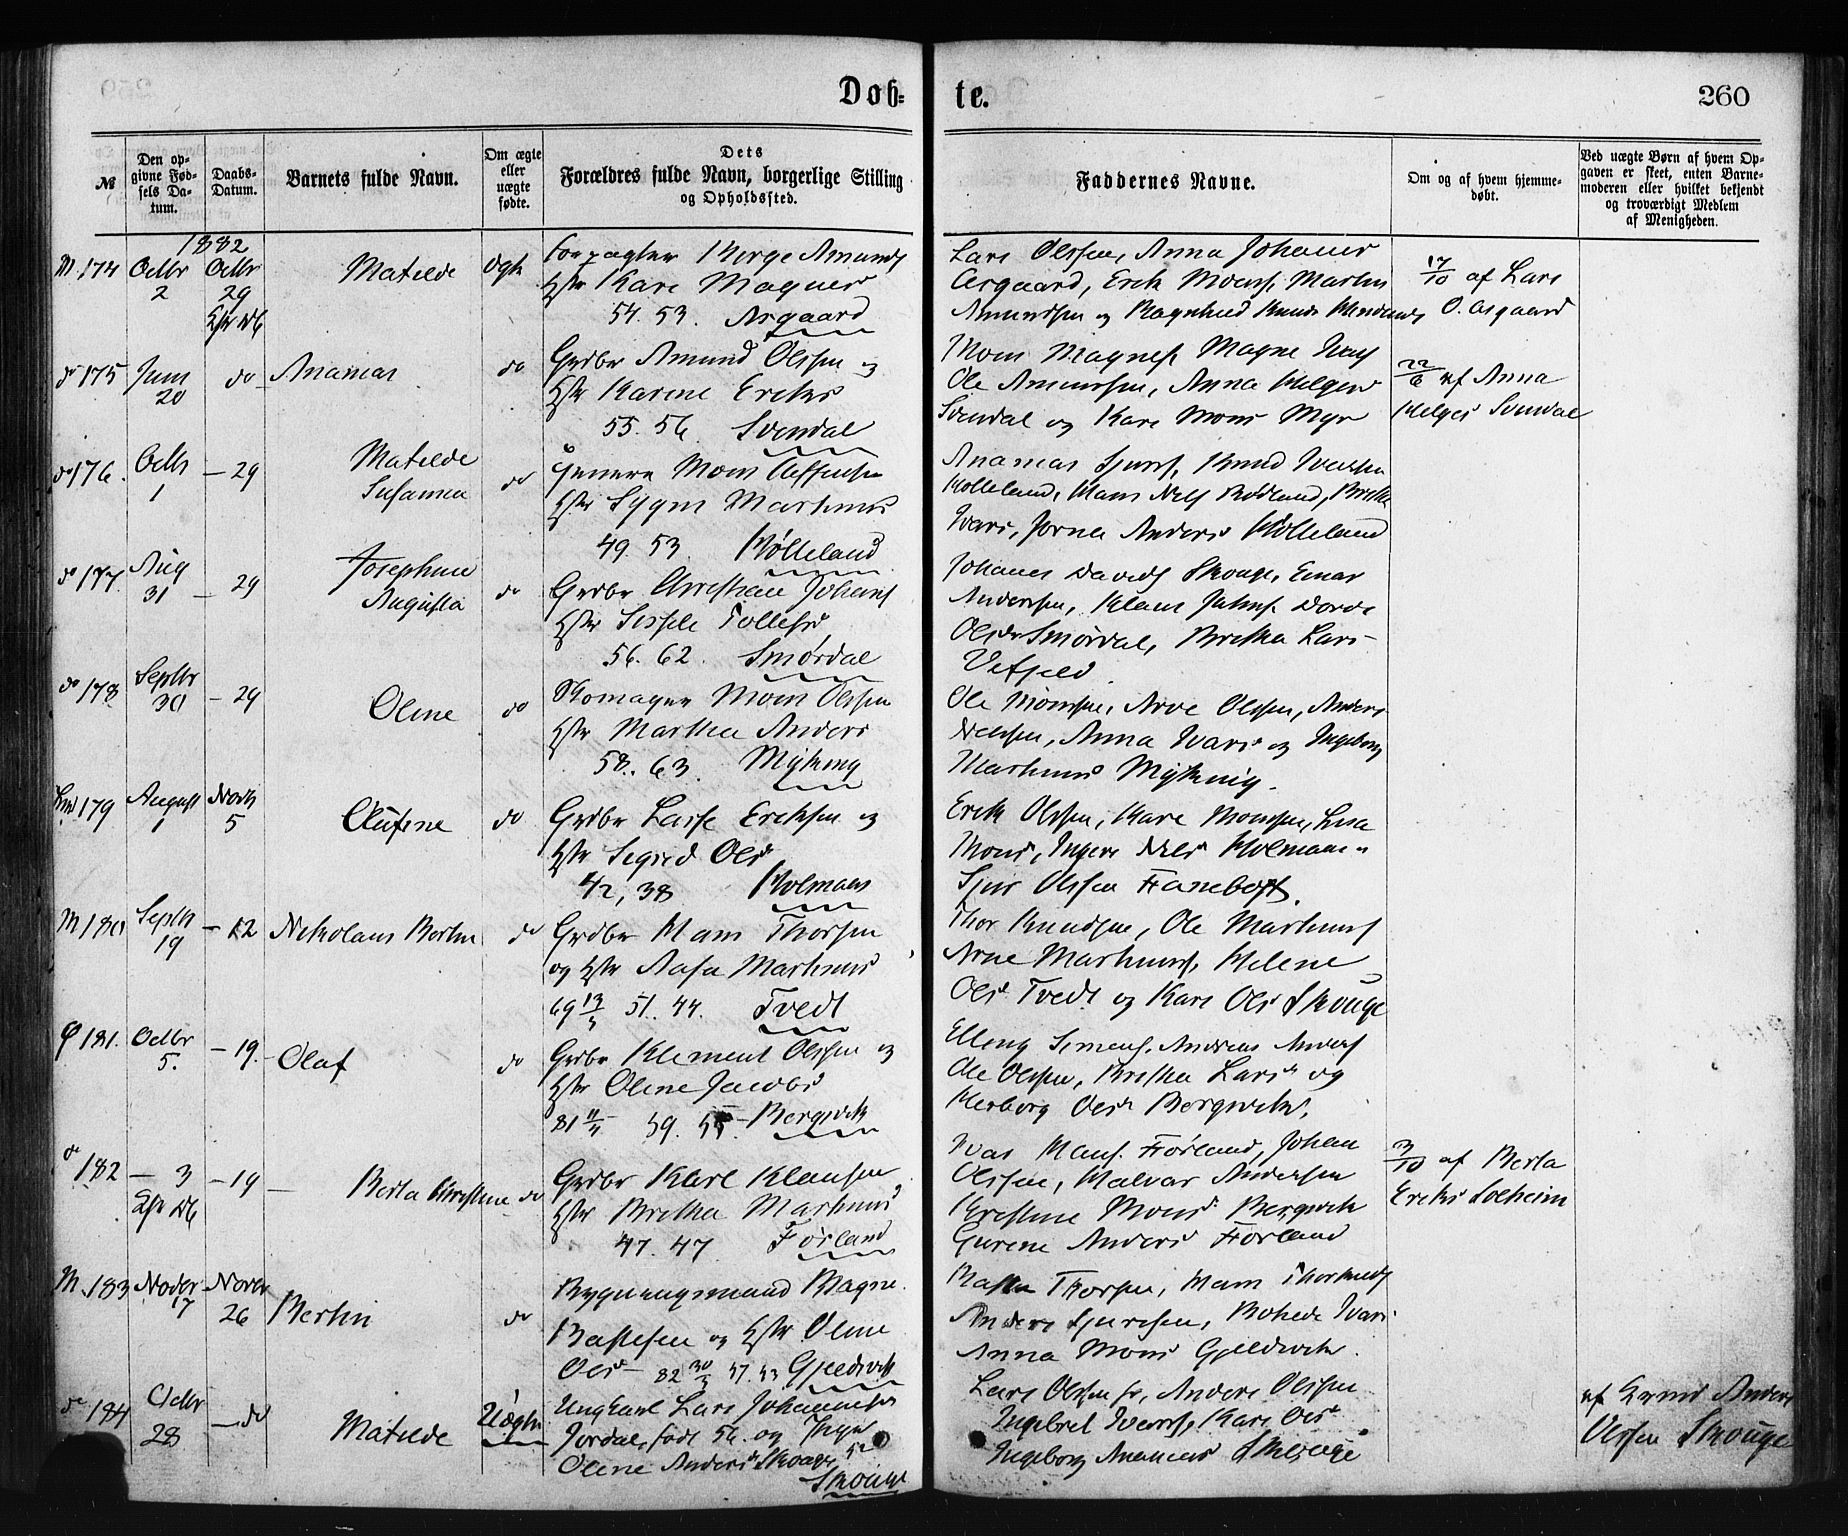 Døb-
te.
260
№
Den op-
givne Fød-
sels Da-
tum.
Daabs-
Datum.
Barnets fulde Navn.
Om ægte
eller
uægte
fødte.
Dets
Forældres fulde Navn, borgerlige Stilling
og Opholdssted.
Faddernes Navne.
Om og af hvem hjemme-
døbt.
Ved uægte Børn af hvem Op-
gaven er skeet, enten Barne-
moderen eller hvilket bekjendt
og troværdigt Medlem
af Menigheden.
1882
M 174
Octbr
2
Octbr
29
Matilde
Ægte
Amunds
Kstr Kari Magnesd
54. 53. Asgaard
Lars Olssen, Anna Johanes
Asgaard, Erik Monss. Martin
Amundsen og Ragnhild Knuds
17/10 af Lars
O. Asgaard
do 175
Juni
20
do
Ananias
do
Grdbr Amund Olssen og
Kstr Karine Eriks
55. 56. Svendal
Mons Magness. Magne Ivars
Ole Amundsen, Anna Helges
Svendal og Kari Mons Myr
22/6 af Anna
Helges Svendal
do 176.
Octbr
1
— 29
Matilde
Susanna
do
Mons
Kstr Sygni Martinus
49. 53. Hölleland
Ananias Sjurs. Knud Iversen
Hölleland, Hans Nels Rödland, Britha
Ivars, Jorna Anders Hölleland
do 177.
Aug
31
— 29
Josephine
Augusta
do
Grdbr Christian Johans
Kstr Sissele Tollefsd
56. 62. Smørdal
Johanes Davids Skouge, Einar
Anderssen, Klaus Johns. Dorde
Olsdr Smørdal, Britha Lars
do 178
Septbr
30
— 29
Oline
do
Skomager Mons Olssen
Kstr Martha Anders
58. 63. Myking
Ole Monssen, Arve Olssen, Anders
Anna Ivars og Ingeborg
Martinus Myking.
179
August
1
Novbr
5
Olufine
do
Grdbr Lasse Eriksen og
Kstr Segred Ols
42, 38 Holmaas
Erik Olssen, Kari Monssen, Lisa
Mons, Ingeri Nels Holmaas
Sjur Olssen Fanebost.
M 180
Septbr
19
— 12
Nikolaus Bertin
do
Grdbr Hans Thorsen
og Kstr Aasa Martinus
69 13/3 51. 44. Tvedt
Thor Knudsen, Ole Martinus
Arne Martinus, Helene
Ols Tvedt og Kari Ols Skouge
181.
Octbr
5.
— 19.
Olaf
do
Grdbr Klement Olssen og
Kstr Oline Jacobs
81 11/4 59. 55. Bergsvik
Elling Simens. Andreas Anders
Ole Olssen, Britha Lars og
Herborg Ols Bergsvik.
do 182
— 3
— 19
Berta Christine
do
Grdbr Karl Klausen
Kstr Britha Martinus
47. 47 Førland
Ivar Hans. Førland, Johan
Olssen, Halvar Andersen
Kristine Mons Bergsvik
Gurine Anders Førland
3/10 af Berta
Eriks Solheim
M 183
Novbr
17
Novbr
26
Bertin
do
Bygningsmand Magne
Bastesen og Kstr Oline
Ols 82 30/3 57. 53 Gjeldsvik
Thorsen, Hans
Anders Sjursen, Ivars
Anna Mons Gjeldsvik.
do 184
Octbr
28
— do
Matilde
Uægte
Ungkarl Lars Johannesen
Jordal, født 56. og Pige
Oline Anders Skouge 52
Skouge
Lars Olssen sr, Anders Olssen
Ingebret Ivers, Kari Ols
Ingeborg Ananias Skouge
af Anders
Olssen Skouge